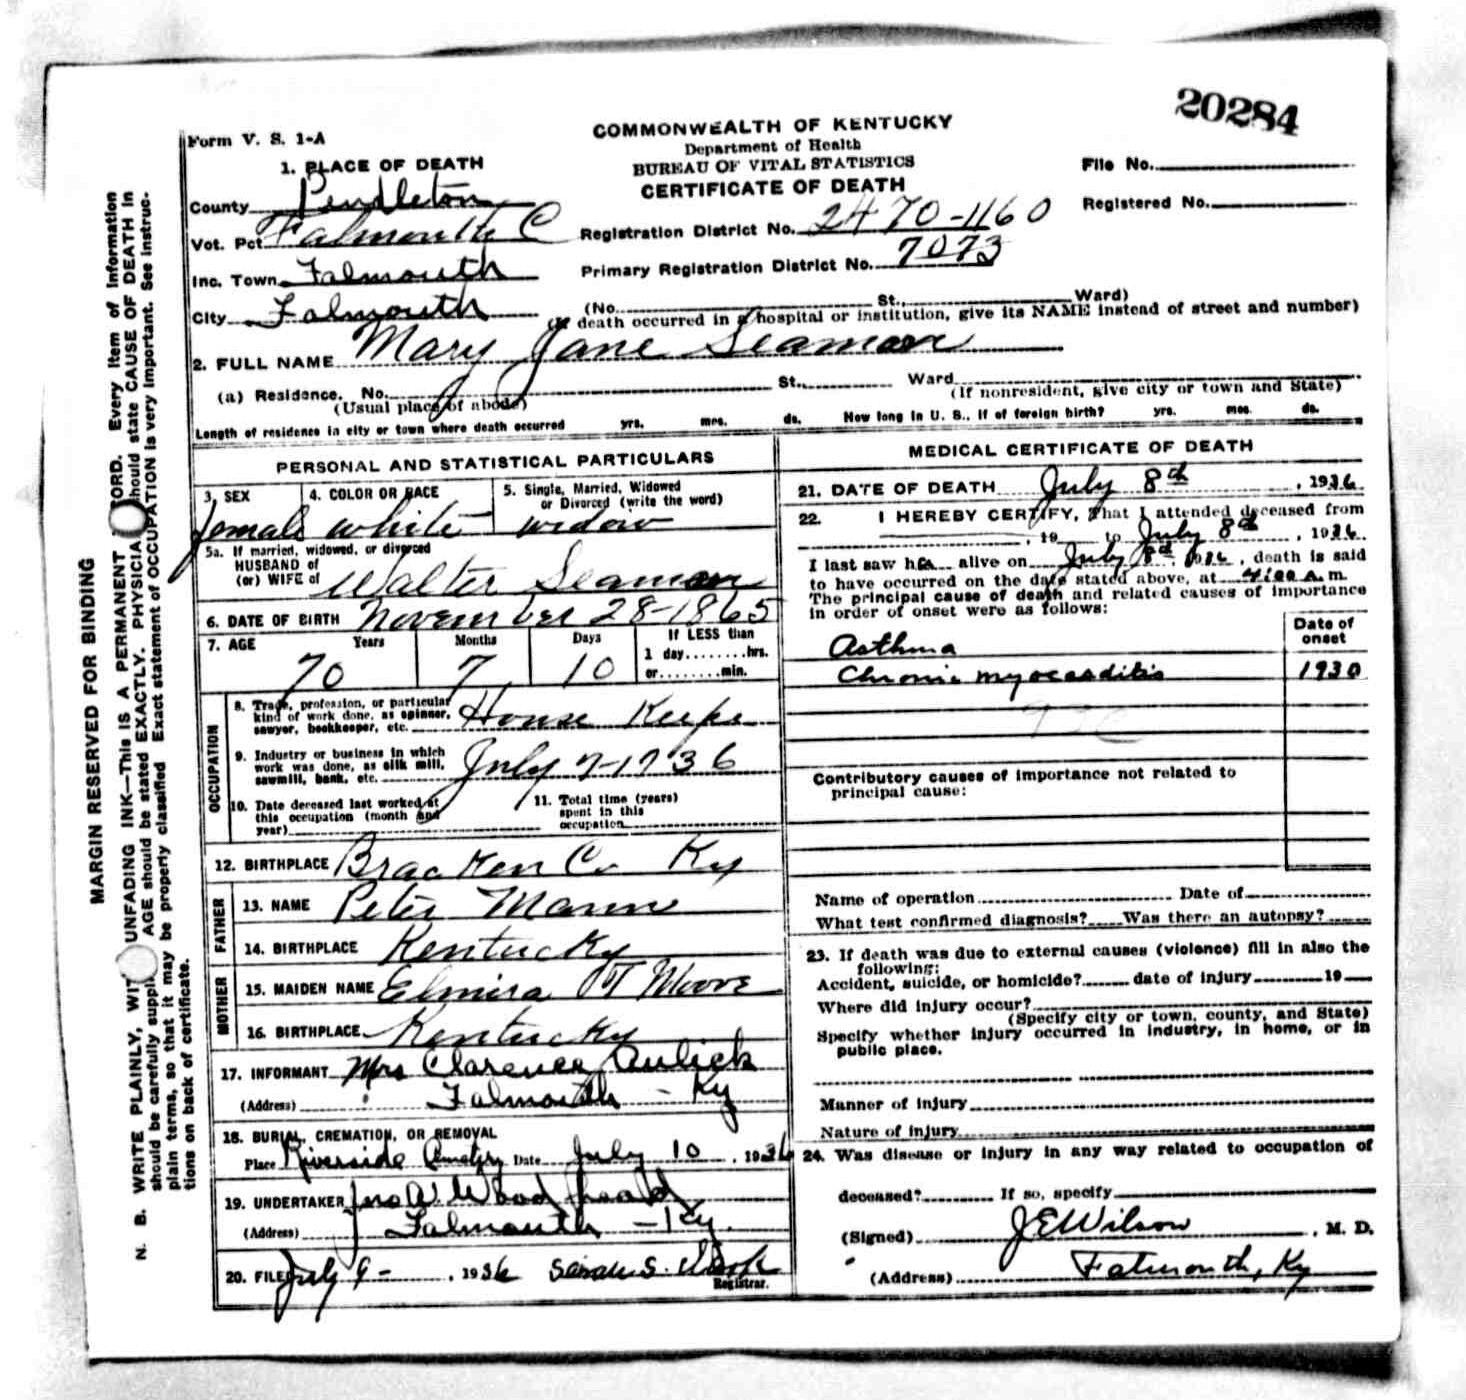 20284
Form V. S. 1-A
COMMONWEALTH OF KENTUCKY
Department of Health
BUREAU OF VITAL STATISTICS
CERTIFICATE OF DEATH
File No.
Registered No.
1. PLACE OF DEATH
County Pendleton
Vot. Pct Falmouth C
Registration District No. 2470-1160
Inc. Town Falmouth
Primary Registration District No. 7073
City Falmouth
(No. St., Ward)
(If death occurred in a hospital or institution, give its NAME instead of street and number)
2. FULL NAME Mary Jane Seaman
(a) Residence. No. St., Ward
(Usual place of abode) (If nonresident, give city or town and State)
Length of residence in city or town where death occurred yrs. mos. ds. How long in U. S., if of foreign birth? yrs. mos. ds.
PERSONAL AND STATISTICAL PARTICULARS
3. SEX 4. COLOR OR RACE 5. Single, Married, Widowed
or Divorced (write the word)
female white widow
5a. If married, widowed, or divorced
HUSBAND of
(or) WIFE of Walter Seaman
6. DATE OF BIRTH November 28-1865
7. AGE Years Months Days If LESS than
1 day........hrs.
70 7 10 or........min.
OCCUPATION
8. Trade, profession, or particular
kind of work done, as spinner,
sawyer, bookkeeper, etc. House Keeper
9. Industry or business in which
work was done, as silk mill,
sawmill, bank, etc. July 7-1936
10. Date deceased last worked at
this occupation (month and
year)
11. Total time (years)
spent in this
occupation
12. BIRTHPLACE Bracken Co Ky
FATHER
13. NAME Peter Mann
14. BIRTHPLACE Kentucky
MOTHER
15. MAIDEN NAME Elmira T Moore
16. BIRTHPLACE Kentucky
17. INFORMANT Mrs Clarence Aulick
(Address) Falmouth - Ky
18. BURIAL, CREMATION, OR REMOVAL
Place Riverside Cemetery Date July 10, 1936
19. UNDERTAKER Woodhead
(Address) Falmouth - Ky.
20. FILED July 9-, 1936 Sarah S.
Registrar.
MEDICAL CERTIFICATE OF DEATH
21. DATE OF DEATH July 8th, 1936
22. I HEREBY CERTIFY, That I attended deceased from
, 19 to July 8th, 1936
I last saw her alive on July 8th, 1936, death is said
to have occurred on the date stated above, at 4:00 A. m.
The principal cause of death and related causes of importance
in order of onset were as follows:
Date of
onset
Asthma
Chronic myocarditis 1930
Contributory causes of importance not related to
principal cause:
Name of operation Date of
What test confirmed diagnosis? Was there an autopsy?
23. If death was due to external causes (violence) fill in also the
following:
Accident, suicide, or homicide? date of injury 19
Where did injury occur?
(Specify city or town, county, and State)
Specify whether injury occurred in industry, in home, or in
public place.
Manner of injury
Nature of injury
24. Was disease or injury in any way related to occupation of
deceased? If so, specify
(Signed) J E Wilson, M. D.
(Address) Falmouth, Ky
MARGIN RESERVED FOR BINDING
N. B. WRITE PLAINLY, WITH UNFADING INK—This is A PERMANENT RECORD. Every item of information
should be carefully supplied. AGE should be stated EXACTLY. PHYSICIANS should state CAUSE OF DEATH in
plain terms, so that it may be properly classified. Exact statement of OCCUPATION is very important. See instruc-
tions on back of certificate.